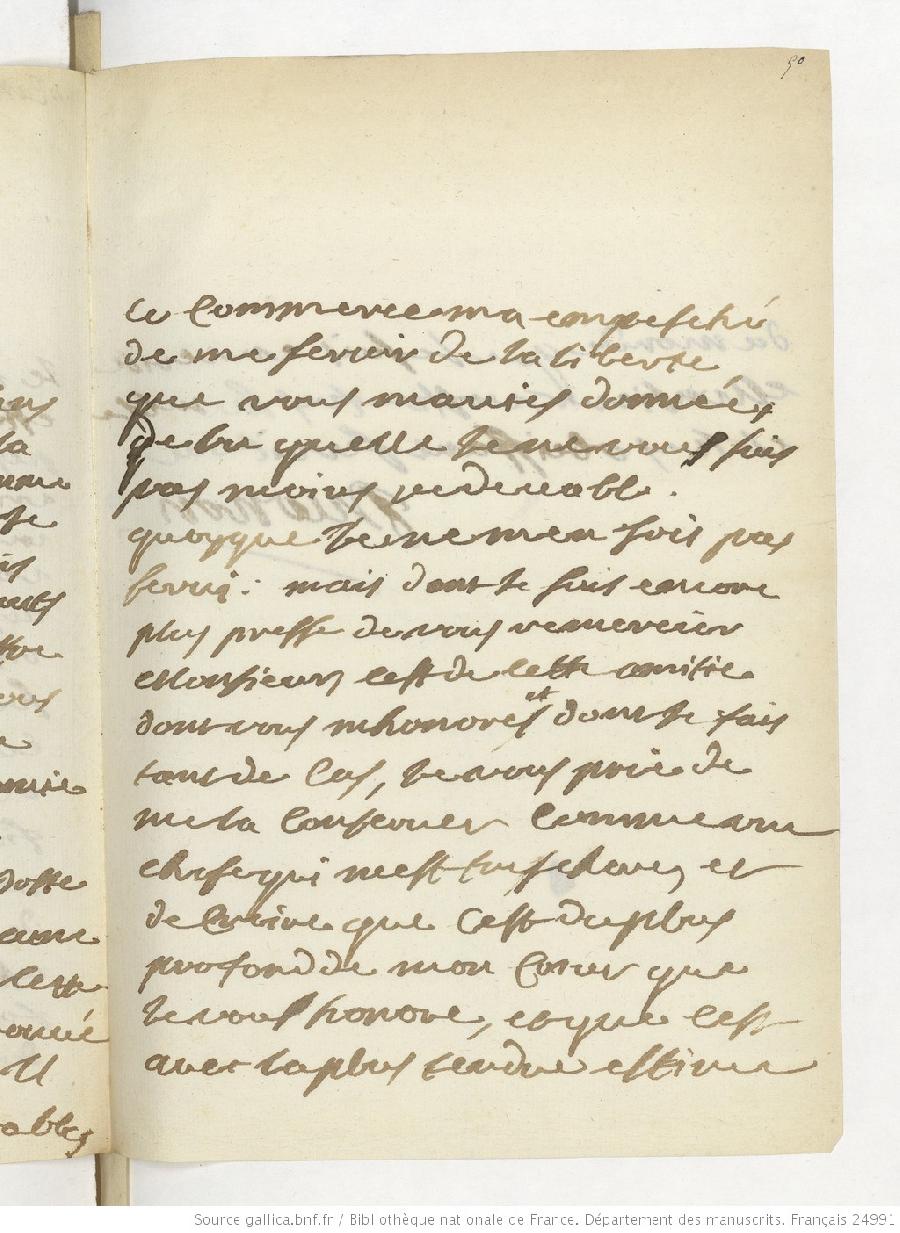 90
ce Commerce ma empesché
de me servir de la liberté
que vous mauies donnée,
de la quelle ie ne vous suis
pas moins redeuable.
quoyque ie ne men sois pas
serui: mais dont ie suis encore
plus presse de vous remercier
Monsieur, cest de cette amitie
dont vous mhonorés et dont ie fais
tant de cas, ie vous prie de
me la conseruer comme une
chose qui mest tres chere, et
de croire que cest du plus
profond de mon coeur que
ie vous honore, et que cest
auec la plus tendre estime
la
ie
cette
Il
Source gallica.bnf.fr / Bibliothèque nationale de France. Département des manuscrits. Français 24991